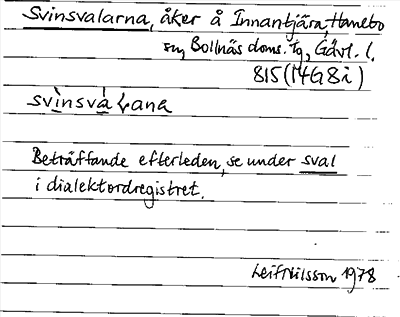 Svinsvalarna, åker å Innantjära, Hanebo
sn, Bollnäs doms. tg, Gävl. l.
815 (14G8i)
svinsvaLana
Beträffande efterleden, se under sval
i dialektordregistret.
Leif Nilsson 1978